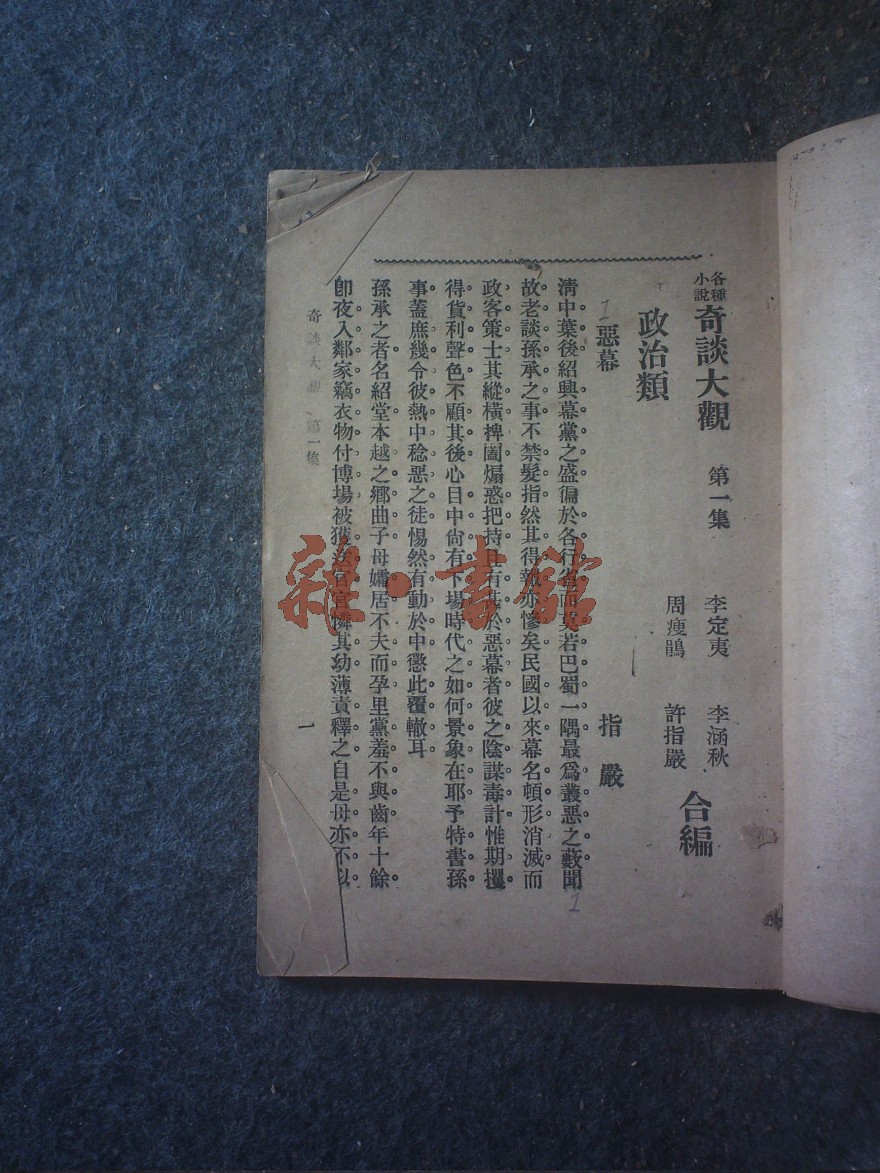 各種小說 奇談大觀 第一集 李定夷 李涵秋 周瘦鵑 許指嚴 合編
政治類
惡幕 指嚴
淸中葉後紹興幕黨之盛徧於各行省而莫若巴蜀一隅最爲叢惡之藪聞
故老談孫承之事不禁髮指然其得報亦慘矣民國以來幕名頓形消滅而
政客策士其縱橫捭闔煽惑把持且有甚於惡幕者彼之陰謀毒計惟期攫
得貨利聲色不顧其後心目中尙有下場時代之如何景象在耶予特書孫
事蓋庶幾令彼熱中稔惡之徒惕然有動於中懲此覆轍耳
孫承之者名紹堂本越之鄉曲子母孀居不夫而孕里黨羞不與齒年十餘
卽夜入鄰家竊衣物付博場被獲送官官憐其幼薄責釋之自是母亦不以
奇談大觀 第一集
一
雜·書館